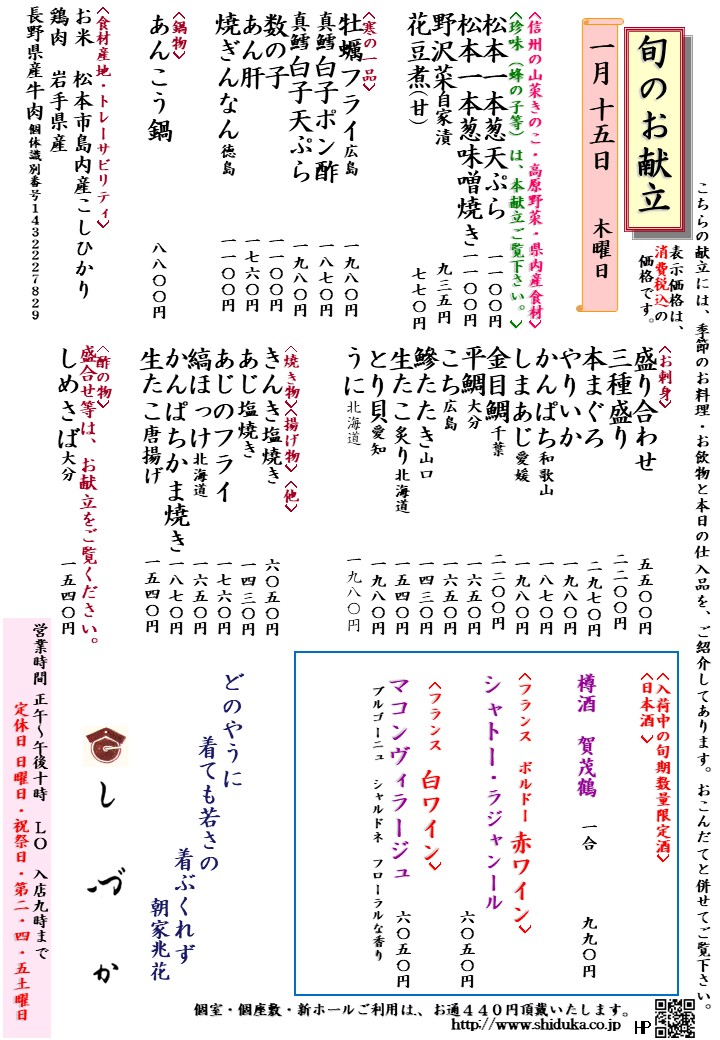 こちらの献立には、季節のお料理・お飲物と本日の仕入品を、ご紹介してあります。おこんだてと併せてご覧下さい。
旬のお献立
表示価格は、
消費税込の
価格です。
一月十五日 木曜日
〈信州の山菜きのこ・高原野菜・県内産食材〉
〈珍味（蜂の子等）は、本献立ご覧下さい。〉
松本一本葱天ぷら 一一〇〇円
松本一本葱味噌焼き 一一〇〇円
野沢菜自家漬 九三五円
花豆煮(甘) 七七〇円
〈寒の一品〉
牡蠣フライ広島 一九八〇円
真鱈白子ポン酢 一八七〇円
真鱈白子天ぷら 一九八〇円
数の子 一一〇〇円
あん肝 一七六〇円
焼きぎんなん徳島 一一〇〇円
〈鍋物〉
あんこう鍋 八八〇〇円
〈食材産地・トレーサビリティ〉
お米 松本市島内産こしひかり
鶏肉 岩手県産
長野県産牛肉個体識別番号1432227829
〈お刺身〉
盛り合わせ 五五〇〇円
三種盛り 二二〇〇円
本まぐろ 二九七〇円
やりいか 一九八〇円
かんぱち和歌山 一八七〇円
しまあじ愛媛 一九八〇円
金目鯛千葉 二二〇〇円
平鯛大分 一六五〇円
こち広島 一六五〇円
鯵たたき山口 一四三〇円
生たこ炙り北海道 一五四〇円
とり貝愛知 一九八〇円
うに北海道 一九八〇円
〈焼き物〉〈揚げ物〉〈他〉
きんき塩焼き 六〇五〇円
あじ塩焼き 一四三〇円
あじのフライ 一七六〇円
縞ほっけ北海道 一六五〇円
かんぱちかま焼き 一八七〇円
生たこ唐揚げ 一五四〇円
〈酢の物〉
盛合せ等は、お献立をご覧ください。
しめさば大分 一五四〇円
〈入荷中の旬期数量限定酒〉
〈日本酒〉
樽酒 賀茂鶴 一合 九九〇円
〈フランス ボルドー 赤ワイン〉
シャトー・ラジャンール 六〇五〇円
〈フランス 白ワイン〉
マコンヴィラージュ 六〇五〇円
ブルゴーニュ シャルドネ フローラルな香り
どのやうに
着ても若さの
着ぶくれず
朝家兆花
しづか
営業時間 正午～午後十時 LO 入店九時まで
定休日 日曜日・祝祭日・第二・四・五土曜日
個室・個座敷・新ホールご利用は、お通440円頂戴いたします。
http://www.shiduka.co.jp HP